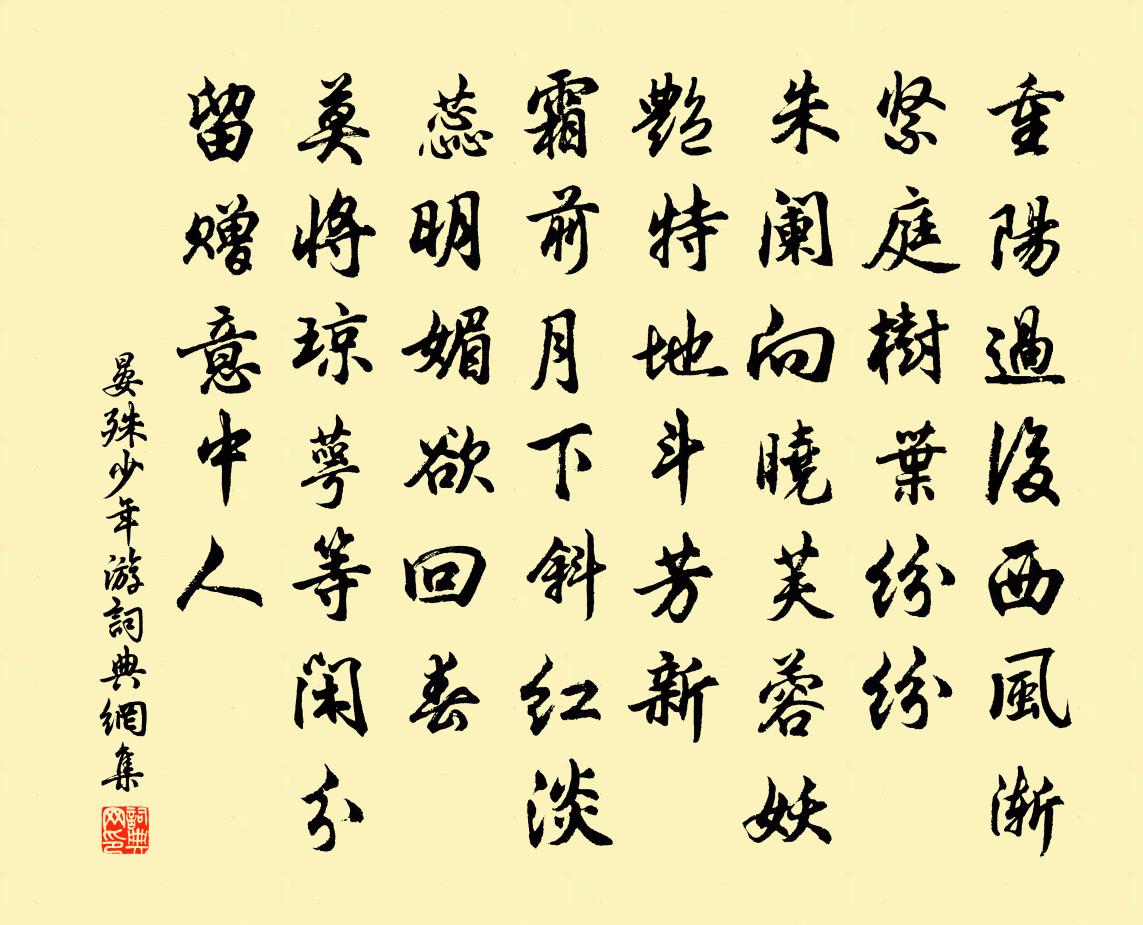 重陽過後西風漸
緊庭樹葉紛紛
朱闌向曉芙蓉妖
艷特地斗芳新
霜前月下斜红淡
蕊明媚欲回春
莫將琼萼等闲分
留赠意中人
晏殊少年游詞典網集
詞典网印